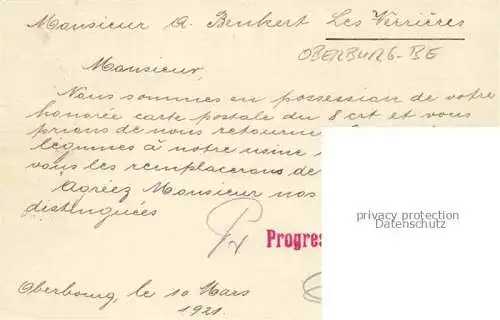 Monsieur A. Benkert Les Verrières
OBERBURG-BE
Monsieur,
Nous sommes en possession de votre
honorée carte postale du 8 crt et vous
prions de nous retourner
légumes à notre usine
vous les remplacerons de
Agréez Monsieur nos
distinguées
Progres
Oberbourg, le 10 Mars
1921.
privacy protection
Datenschutz